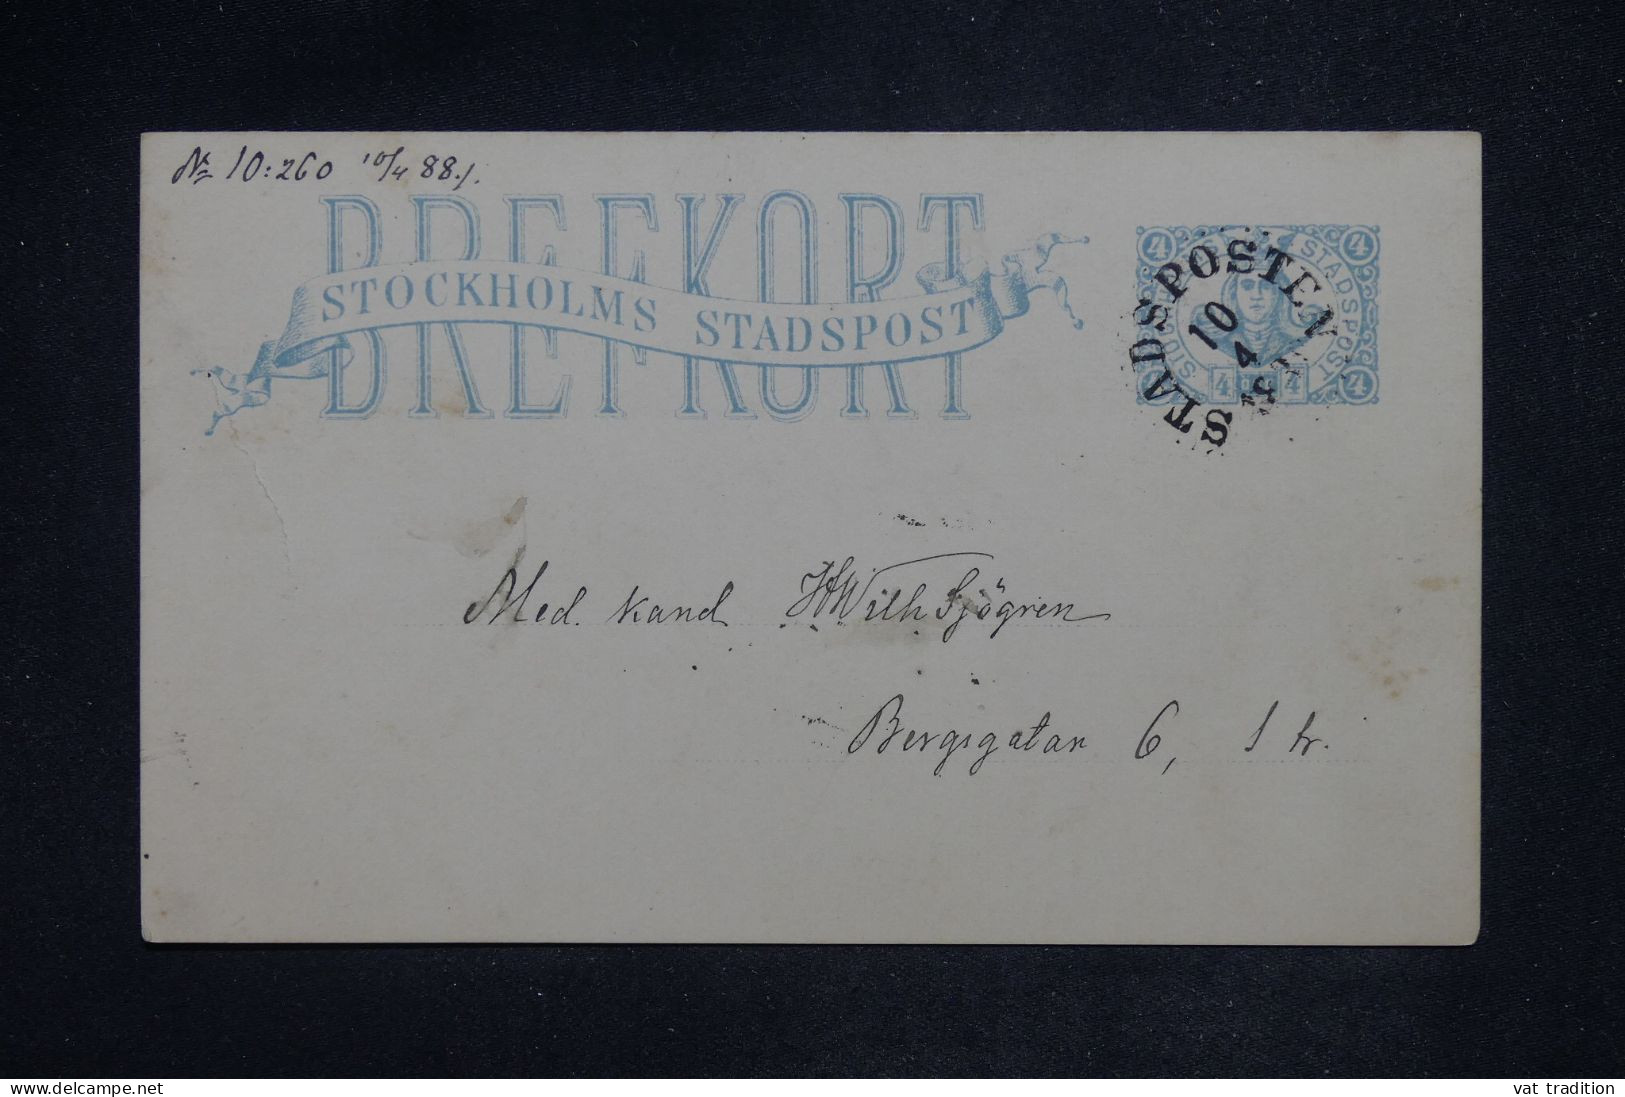 № 10:260 10/4 88.
BREFKORT
STOCKHOLMS STADSPOST
STADSPOSTEN
10
4
4 4
STADSPOST
4 4
4 4
Med. Kand. Wilh Sjögren
Bergsgatan 6, 1 tr.
www.delcampe.net
vat tradition